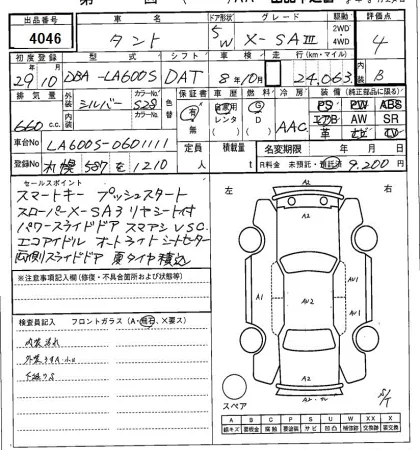 出品番号 車名 ドア形状 グレード 駆動 評価点
4046 タント 5W X-SAⅢ 2WD 4WD 4
初度登録 型式 シフト 車検 走行(km・マイル) 内装
29 10 DBA-LA600S DAT 8年10月 24,063 B
排気量 外装 カラーNo. 色替 保証書 車歴 燃料 冷房 装備(純正部品に限る)
660 c.c. シルバー S28 有 無 自家用 レンタ G D AAC PS PW ABS
内装 カラーNo. エアB AW SR
革 ナビ TV
車台No LA600S-0601111 定員 人 積載量 t 名変期限 年 月 日
登録No 札幌 587 1210 R料金 未預託・預託済 9,200円
セールスポイント
スマートキー プッシュスタート
スローパーX-SA3 リヤシート付
パワースライドドア スマアシ VSC
エコアイドル オートライト シートヒーター
両側スライドドア 夏タイヤ積込
※注意事項記入欄(修復・不具合箇所および状態等)
検査員記入 フロントガラス(A・飛石・X要ス)
内装汚れ
下廻りS
左 右
A2
A1 AU2 AU1
A2
スペア
A B C P S U W X XX
線キズ 要板金 腐蝕 要塗装 サビ 凹凸 補修跡 要交換 交換済